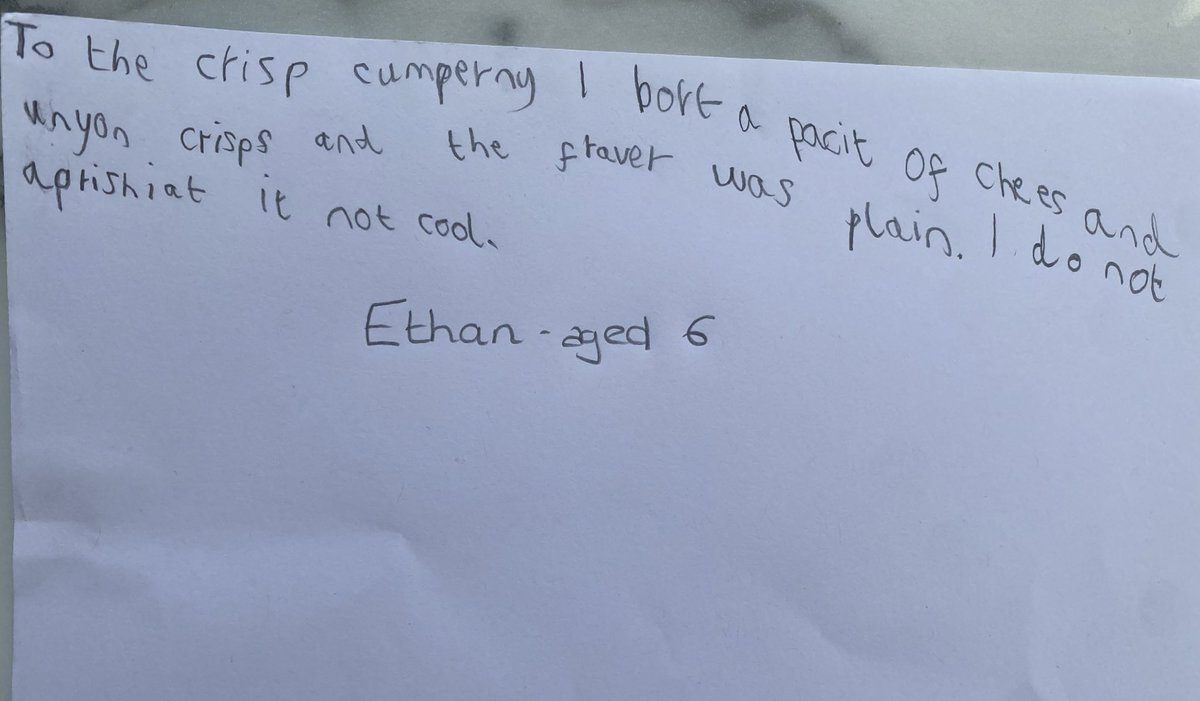 To the crisp cumperny I bort a pacit of chees and
unyon crisps and the fraver was plain. I do not
aprishiat it not cool.
Ethan - aged 6